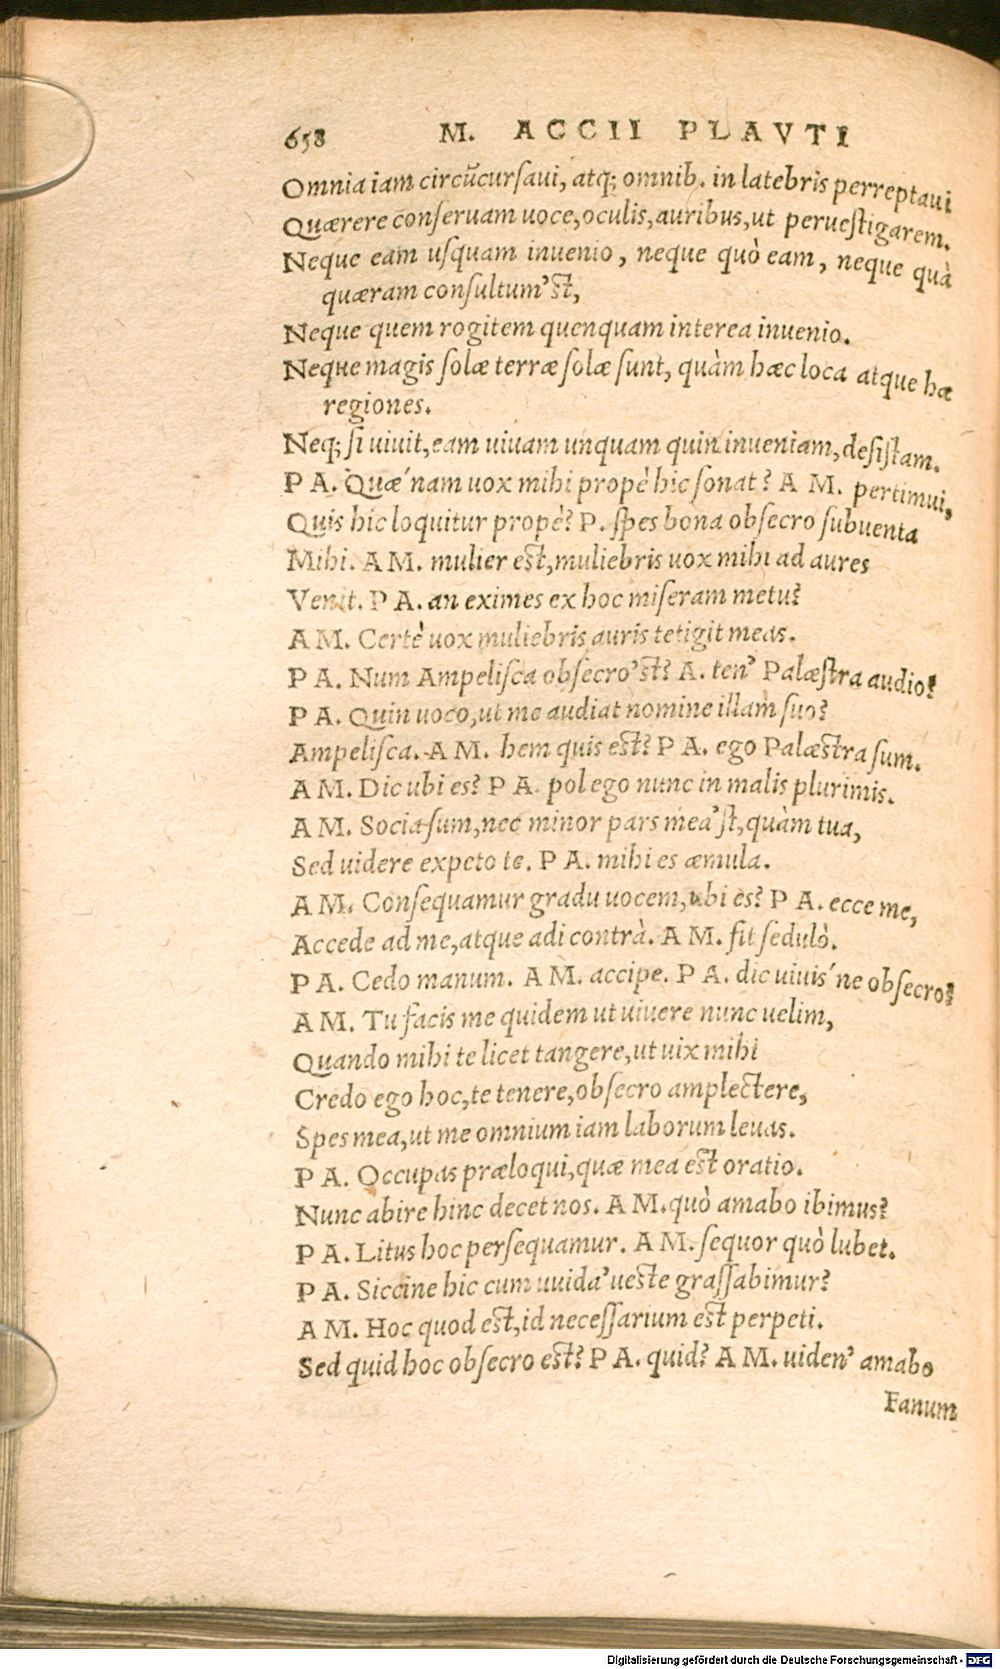 658 M. ACCII PLAVTI
Omnia iam circũcursaui, atq; omnib. in latebris perreptaui
Quærere conseruam uoce, oculis, auribus, ut peruestigarem.
Neque eam usquam inuenio, neque quò eam, neque quà
quæram consultum'st,
Neque quem rogitem quenquam interea inuenio.
Neque magis solæ terræ solæ sunt, quàm hæc loca atque hæ
regiones.
Neq; si uiuit, eam uiuam unquam quin inueniam, desistam.
P A. Quæ'nam uox mihi propè hic sonat? A M. pertimui,
Quis hic loquitur propè? P. spes bona obsecro subuenta
Mihi. A M. mulier est, muliebris uox mihi ad aures
Venit. P A. an eximes ex hoc miseram metu?
A M. Certè uox muliebris auris tetigit meas.
P A. Num Ampelisca obsecro'st? A. ten' Palæstra audio?
P A. Quin uoco, ut me audiat nomine illam suo?
Ampelisca. A M. hem quis est? P A. ego Palæstra sum.
A M. Dic ubi es? P A. pol ego nunc in malis plurimis.
A M. Socia sum, nec minor pars mea'st, quàm tua,
Sed uidere expeto te. P A. mihi es æmula.
A M. Consequamur gradu uocem, ubi es? P A. ecce me,
Accede ad me, atque adi contrà. A M. fit sedulò.
P A. Cedo manum. A M. accipe. P A. dic uiuis'ne obsecro?
A M. Tu facis me quidem ut uiuere nunc uelim,
Quando mihi te licet tangere, ut uix mihi
Credo ego hoc, te tenere, obsecro amplectere,
Spes mea, ut me omnium iam laborum leuas.
P A. Occupas præloqui, quæ mea est oratio.
Nunc abire hinc decet nos. A M. quò amabo ibimus?
P A. Litus hoc persequamur. A M. sequor quò lubet.
P A. Siccine hic cum uuida' ueste grassabimur?
A M. Hoc quod est, id necessarium est perpeti.
Sed quid hoc obsecro est? P A. quid? A M. uiden' amabo
Fanum
Digitalisierung gefördert durch die Deutsche Forschungsgemeinschaft - DFG